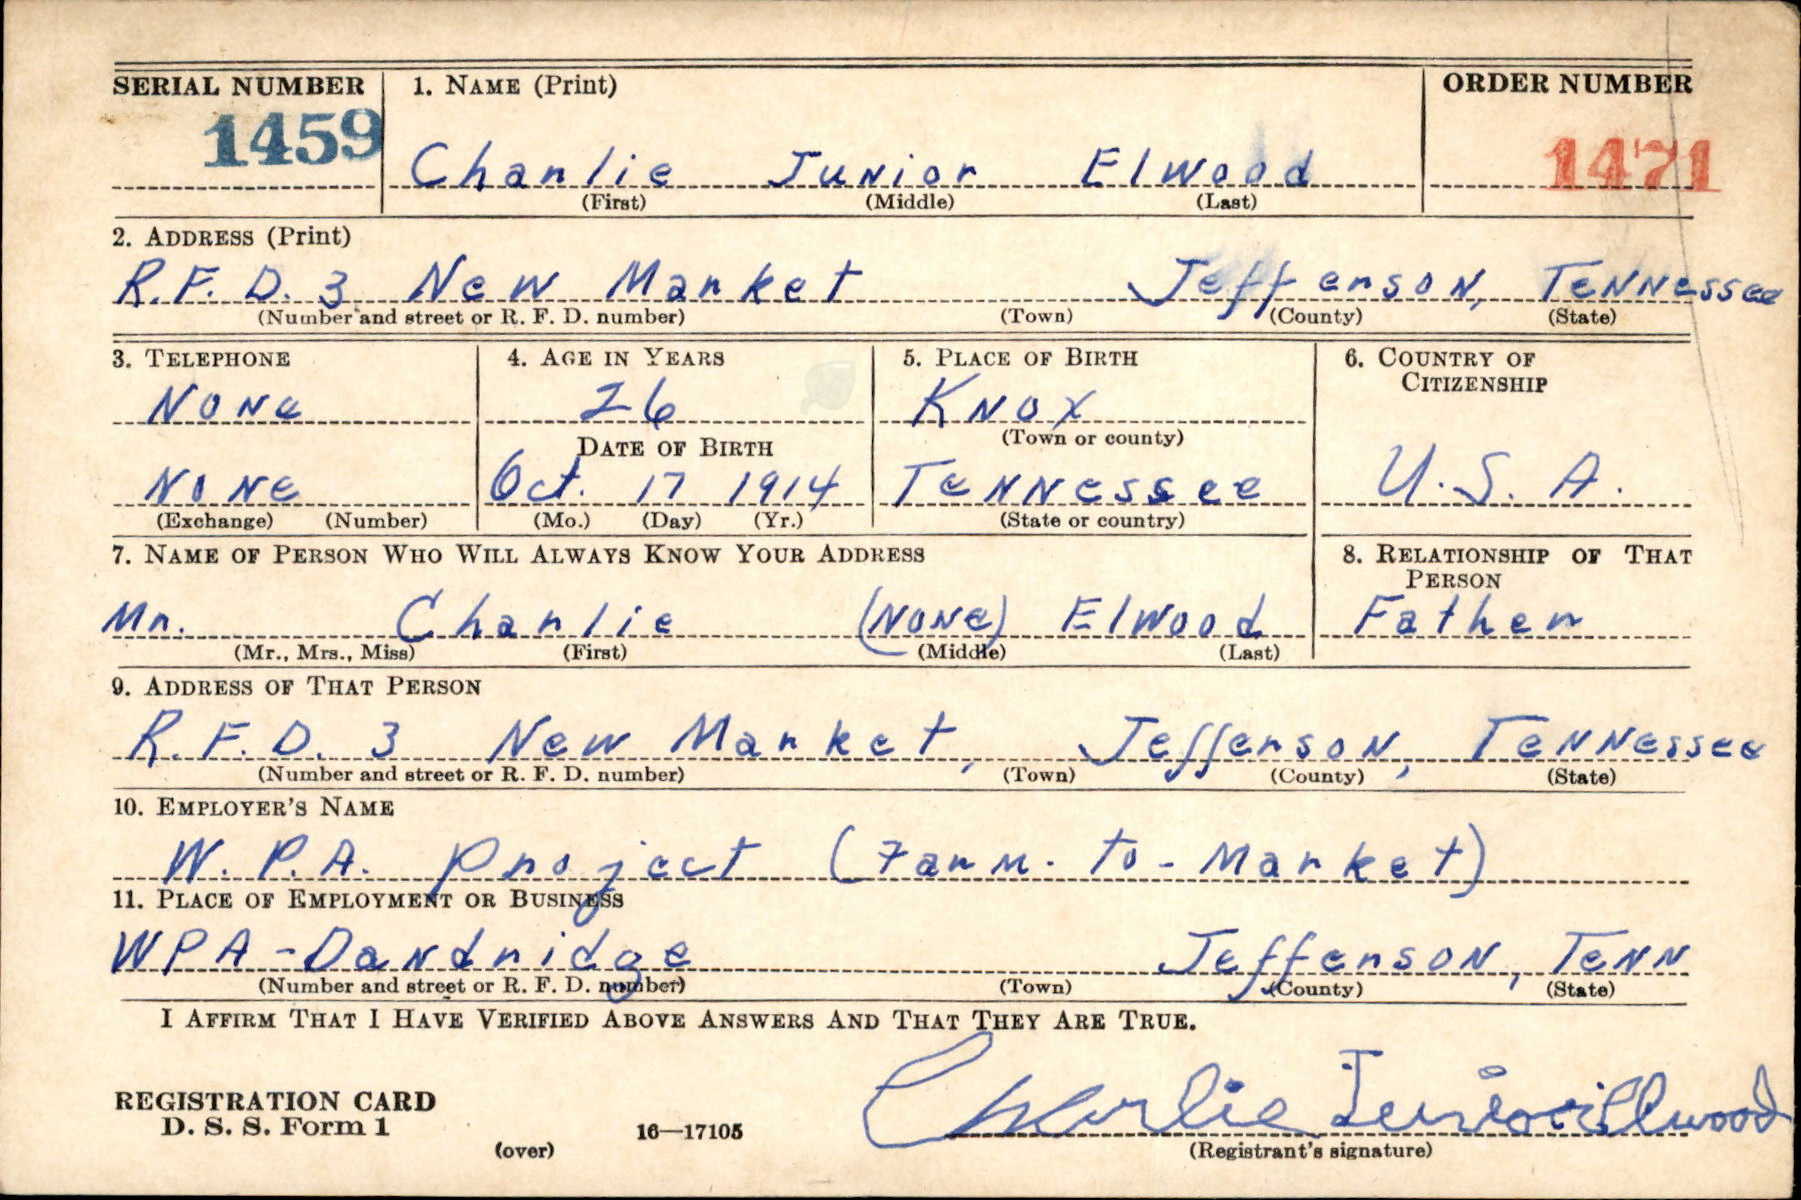 SERIAL NUMBER 1. NAME (Print) ORDER NUMBER
1459 Charlie Junior Elwood 1471
(First) (Middle) (Last)
2. ADDRESS (Print)
R.F.D. 3 New Market Jefferson, Tennessee
(Number and street or R. F. D. number) (Town) (County) (State)
3. TELEPHONE 4. AGE IN YEARS 5. PLACE OF BIRTH 6. COUNTRY OF
CITIZENSHIP
None 26 Knox
(Town or county)
DATE OF BIRTH
None Oct. 17 1914 Tennessee U.S.A.
(Exchange) (Number) (Mo.) (Day) (Yr.) (State or country)
7. NAME OF PERSON WHO WILL ALWAYS KNOW YOUR ADDRESS 8. RELATIONSHIP OF THAT
PERSON
Mr. Charlie (None) Elwood Father
(Mr., Mrs., Miss) (First) (Middle) (Last)
9. ADDRESS OF THAT PERSON
R.F.D. 3 New Market, Jefferson, Tennessee
(Number and street or R. F. D. number) (Town) (County) (State)
10. EMPLOYER'S NAME
W.P.A. Project (Farm-to-Market)
11. PLACE OF EMPLOYMENT OR BUSINESS
WPA-Dandridge Jefferson, Tenn
(Number and street or R. F. D. number) (Town) (County) (State)
I AFFIRM THAT I HAVE VERIFIED ABOVE ANSWERS AND THAT THEY ARE TRUE.
Charlie Junior Ellwood
REGISTRATION CARD
D. S. S. Form 1
(over) 16—17105 (Registrant's signature)